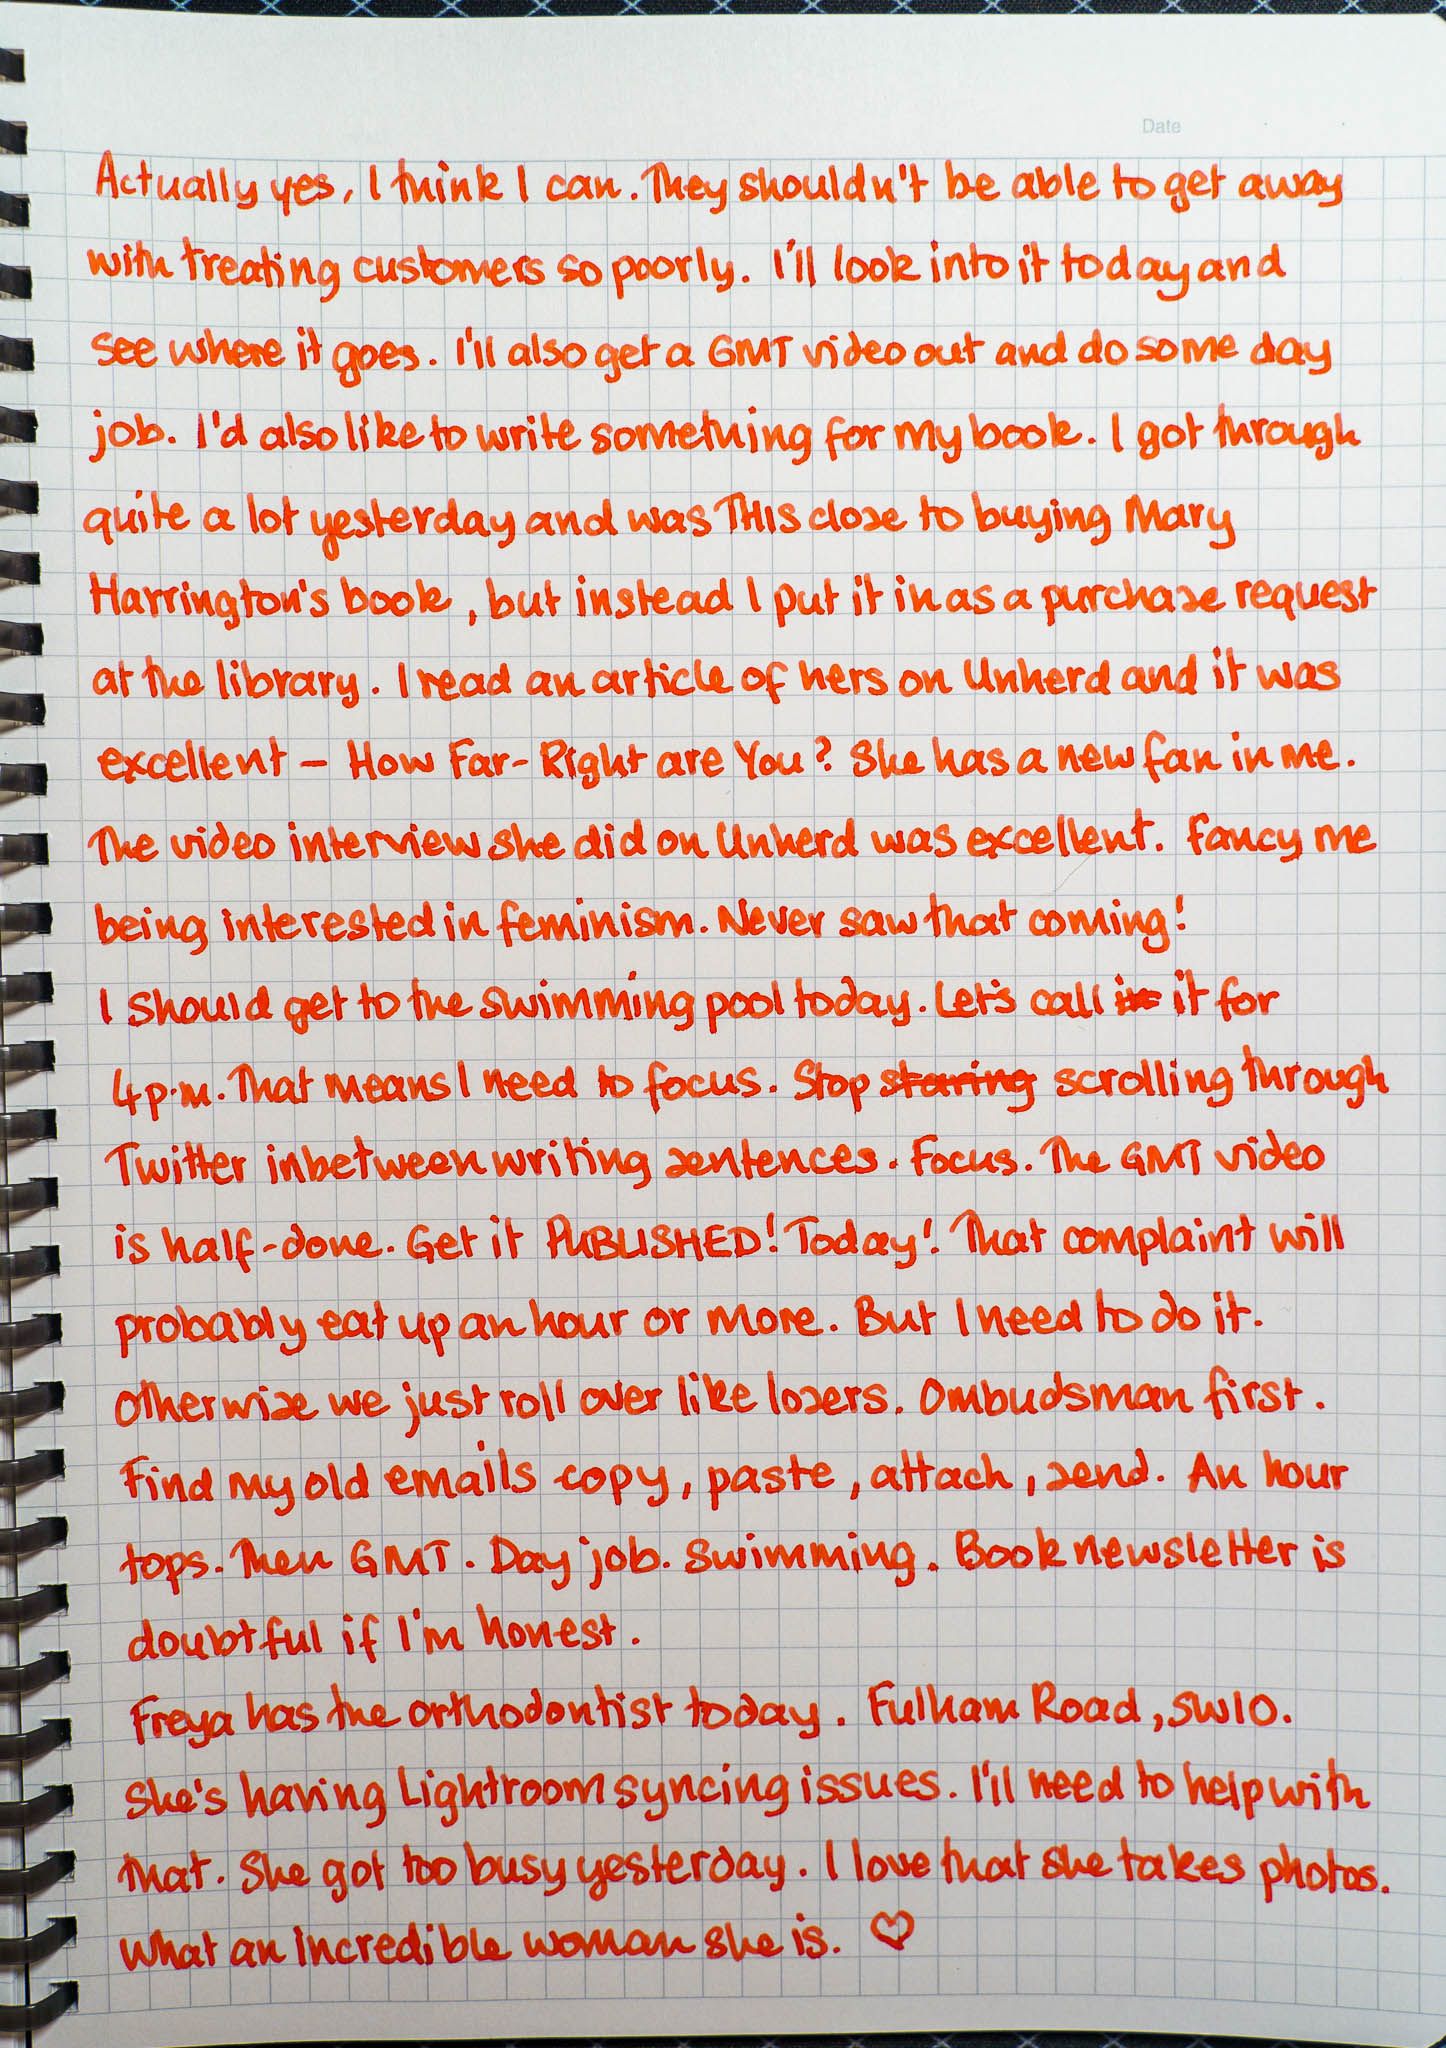 Date
Actually yes, I think I can. They shouldn't be able to get away
with treating customers so poorly. I'll look into it today and
see where it goes. I'll also get a GMT video out and do some day
job. I'd also like to write something for my book. I got through
quite a lot yesterday and was THIS close to buying Mary
Harrington's book, but instead I put it in as a purchase request
at the library. I read an article of hers on Unherd and it was
excellent – How Far-Right are You? She has a new fan in me.
The video interview she did on Unherd was excellent. Fancy me
being interested in feminism. Never saw that coming!
I should get to the swimming pool today. Let's call it for
4p.m. That means I need to focus. Stop staring scrolling through
Twitter inbetween writing sentences. Focus. The GMT video
is half-done. Get it PUBLISHED! Today! That complaint will
probably eat up an hour or more. But I need to do it.
Otherwise we just roll over like losers. Ombudsman first.
Find my old emails copy, paste, attach, send. An hour
tops. Then GMT. Day job. Swimming. Book newsletter is
doubtful if I'm honest.
Freya has the orthodontist today. Fulham Road, SW10.
She's having Lightroom syncing issues. I'll need to help with
that. She got too busy yesterday. I love that she takes photos.
What an incredible woman she is. ♡